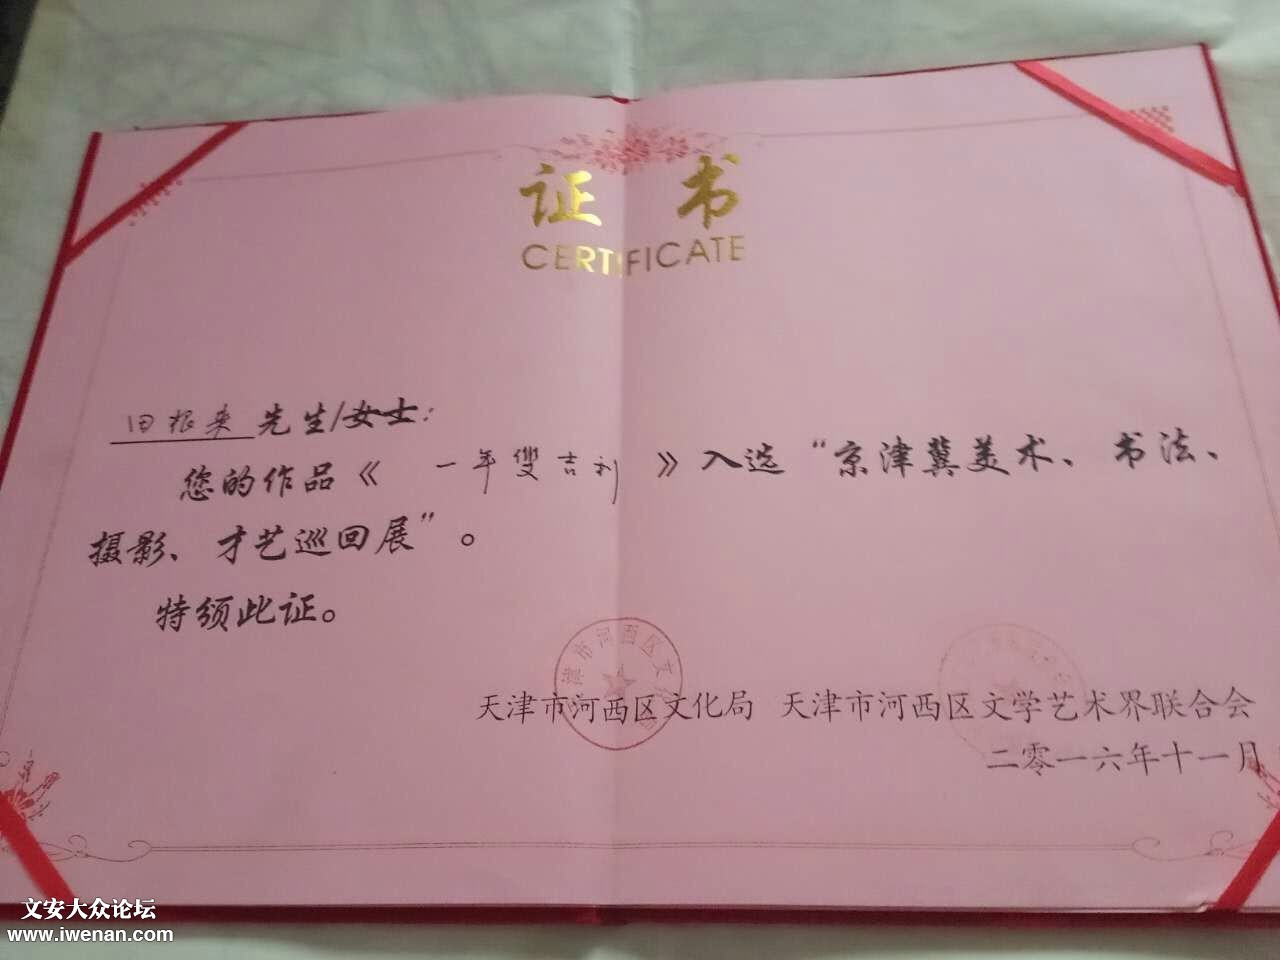 证 书
CERTIFICATE
田根来 先生/女士：
您的作品《 一年雙吉利 》入选“京津冀美术、书法、
摄影、才艺巡回展”。
特颁此证。
津市河西区文
天津市河西区文化局 天津市河西区文学艺术界联合会
二零一六年十一月
文安大众论坛
www.iwenan.com